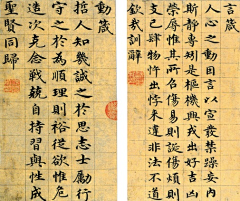 言箴
人心之動因言以宣發禁躁妄內
斯靜專矧是樞機興戎出好吉凶
榮辱惟其所召傷易則誕傷煩則
支己肆物忤出悖來違非法不道
欽哉訓辭
動箴
哲人知幾誠之於思志士勵行
守之於為順理則裕從欲惟危
造次克念戰兢自持習與性成
聖賢同歸